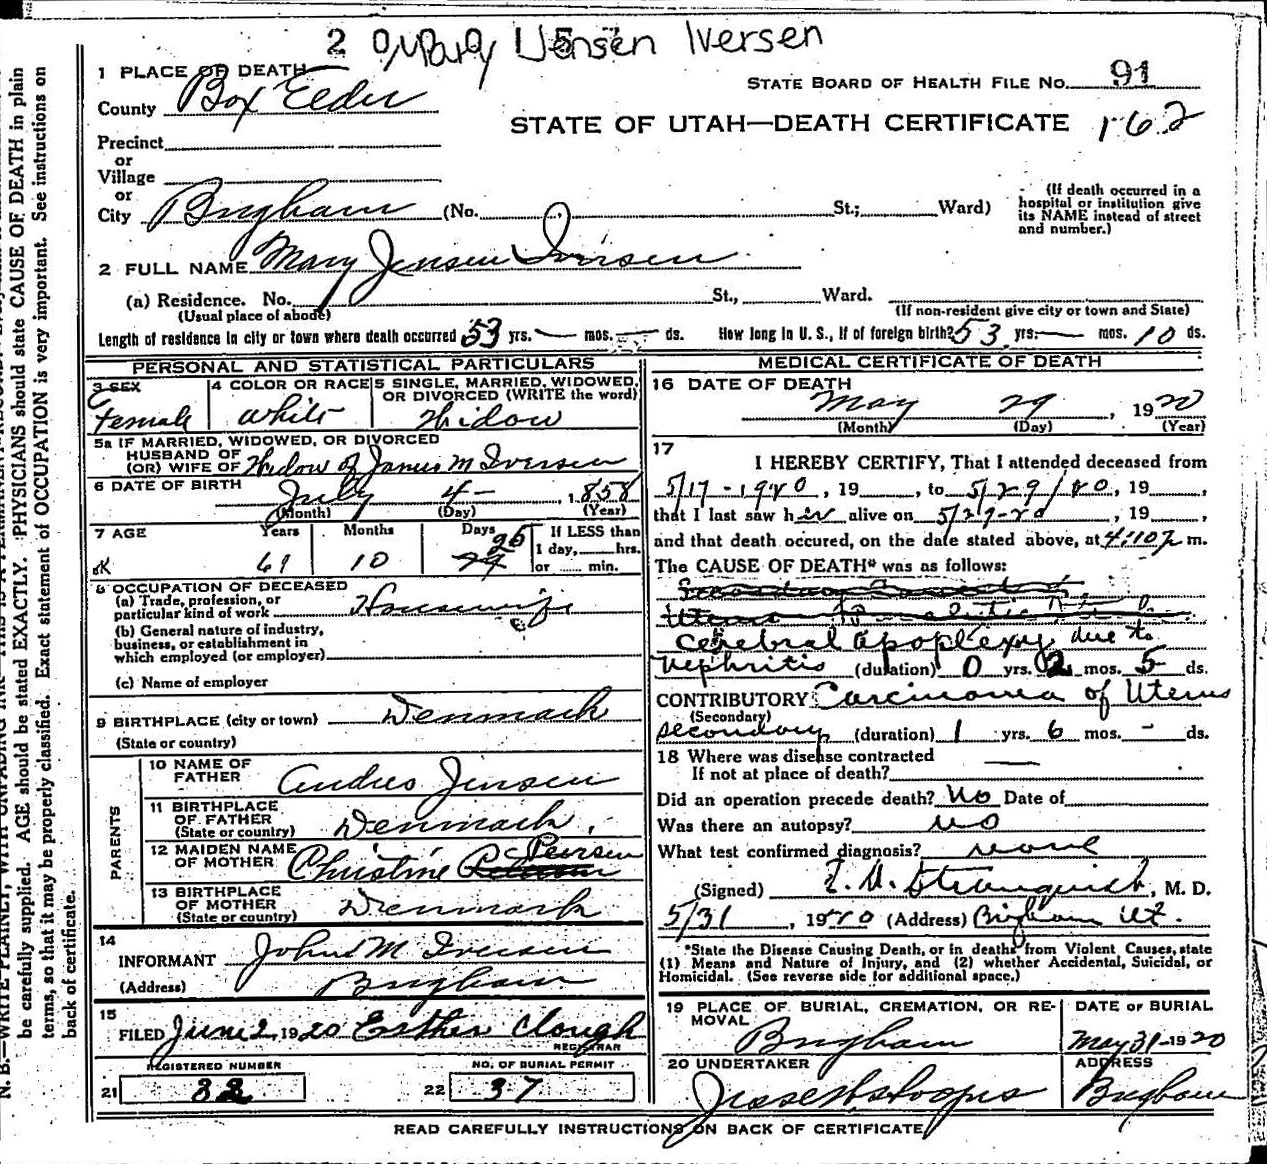 2 Mary Jensen Iversen
1 PLACE OF DEATH
STATE BOARD OF HEALTH FILE NO. 91
County Box Elder
STATE OF UTAH—DEATH CERTIFICATE 162
Precinct
or
Village
or
City Brigham (No. St.; Ward)
(If death occurred in a hospital or institution give its NAME instead of street and number.)
2 FULL NAME Mary Jensen Iversen
(a) Residence. No. St., Ward.
(Usual place of abode) (If non-resident give city or town and State)
Length of residence in city or town where death occurred 53 yrs. — mos. — ds. How long in U. S., if of foreign birth? 53 yrs. — mos. 10 ds.
PERSONAL AND STATISTICAL PARTICULARS
3 SEX Female
4 COLOR OR RACE White
5 SINGLE, MARRIED, WIDOWED, OR DIVORCED (WRITE the word) Widow
5a IF MARRIED, WIDOWED, OR DIVORCED
HUSBAND OF
(OR) WIFE OF Widow of James M Iversen
6 DATE OF BIRTH July 4- , 1858
(Month) (Day) (Year)
7 AGE Years Months Days If LESS than
61 10 25 1 day, hrs.
or min.
OCCUPATION OF DECEASED
(a) Trade, profession, or
particular kind of work Housewife
(b) General nature of industry,
business, or establishment in
which employed (or employer)
(c) Name of employer
9 BIRTHPLACE (city or town) Denmark
(State or country)
PARENTS
10 NAME OF FATHER Andres Jensen
11 BIRTHPLACE OF FATHER (State or country) Denmark.
12 MAIDEN NAME OF MOTHER Christine Peirsen
13 BIRTHPLACE OF MOTHER (State or country) Denmark
14
INFORMANT John M Iversen
(Address) Brigham
15
FILED June 2, 1920 Esther Clough
REGISTRAR
REGISTERED NUMBER NO. OF BURIAL PERMIT
21 22 37
MEDICAL CERTIFICATE OF DEATH
16 DATE OF DEATH
May 29 , 1920
(Month) (Day) (Year)
17
I HEREBY CERTIFY, That I attended deceased from
5/17-1920, 19 , to 5/29/20, 19 ,
that I last saw her alive on 5/29-20 , 19 ,
and that death occured, on the date stated above, at 4:10 p m.
The CAUSE OF DEATH* was as follows:
Cerebral apoplexy due to
Nephritis (duration) 0 yrs. 2 mos. 5 ds.
CONTRIBUTORY Carcinoma of Uterus
(Secondary)
secondary (duration) 1 yrs. 6 mos. - ds.
18 Where was disease contracted
If not at place of death? —
Did an operation precede death? No Date of
Was there an autopsy? no
What test confirmed diagnosis? none
(Signed) , M. D.
5/31 , 1920 (Address) Brigham Ut.
*State the Disease Causing Death, or in deaths from Violent Causes, state
(1) Means and Nature of Injury, and (2) whether Accidental, Suicidal, or
Homicidal. (See reverse side for additional space.)
19 PLACE OF BURIAL, CREMATION, OR REMOVAL Brigham
DATE OF BURIAL May 31-1920
20 UNDERTAKER
ADDRESS Brigham
READ CAREFULLY INSTRUCTIONS ON BACK OF CERTIFICATE
be carefully supplied. AGE should be stated EXACTLY. PHYSICIANS should state CAUSE OF DEATH in plain
terms, so that it may be properly classified. Exact statement of OCCUPATION is very important. See instructions on
back of certificate.